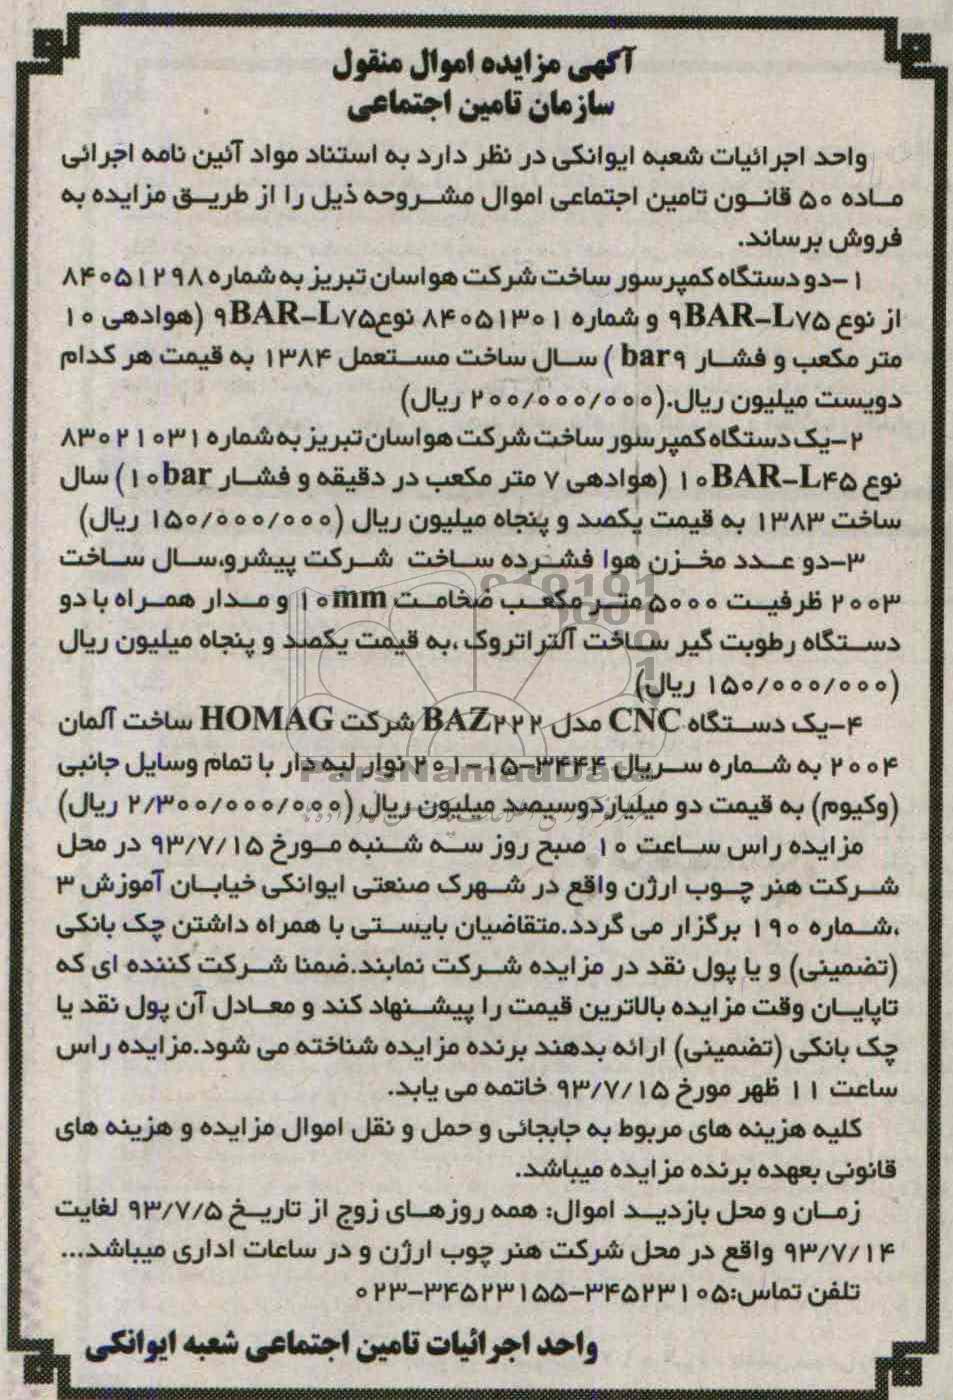 آگهی مزایده اموال منقول
سازمان تامین اجتماعی
واحد اجرائیات شعبه ایوانکی در نظر دارد به استناد مواد آئین نامه اجرائی
ماده ۵۰ قانون تامین اجتماعی اموال مشروحه ذیل را از طریق مزایده به
فروش برساند.
۱-دو دستگاه کمپرسور ساخت شرکت هواسان تبریز به شماره ۸۴۰۵۱۲۹۸
از نوع ۹BAR-L۷۵ و شماره ۸۴۰۵۱۳۰۱ نوع ۹BAR-L۷۵ (هوادهی ۱۰
متر مکعب و فشار ۹bar ) سال ساخت مستعمل ۱۳۸۴ به قیمت هر کدام
دویست میلیون ریال.(۲۰۰/۰۰۰/۰۰۰ ریال)
۲-یک دستگاه کمپرسور ساخت شرکت هواسان تبریز به شماره ۸۳۰۲۱۰۳۱
نوع ۱۰BAR-L۴۵ (هوادهی ۷ متر مکعب در دقیقه و فشار ۱۰bar) سال
ساخت ۱۳۸۳ به قیمت یکصد و پنجاه میلیون ریال (۱۵۰/۰۰۰/۰۰۰ ریال)
۳-دو عدد مخزن هوا فشرده ساخت شرکت پیشرو،سال ساخت
۲۰۰۳ ظرفیت ۵۰۰۰ متر مکعب ضخامت ۱۰mm و مدار همراه با دو
دستگاه رطوبت گیر ساخت آلتراتروک ،به قیمت یکصد و پنجاه میلیون ریال
(۱۵۰/۰۰۰/۰۰۰ ریال)
۴-یک دستگاه CNC مدل BAZ۲۲۲ شرکت HOMAG ساخت آلمان
۲۰۰۴ به شماره سریال ۳۴۴۴-۱۵-۲۰۱-۰ نوار لبه دار با تمام وسایل جانبی
(وکیوم) به قیمت دو میلیارد و سیصد میلیون ریال (۲/۳۰۰/۰۰۰/۰۰۰ ریال)
مزایده راس ساعت ۱۰ صبح روز سه شنبه مورخ ۹۳/۷/۱۵ در محل
شرکت هنر چوب ارژن واقع در شهرک صنعتی ایوانکی خیابان آموزش ۳
،شماره ۱۹۰ برگزار می گردد.متقاضیان بایستی با همراه داشتن چک بانکی
(تضمینی) و یا پول نقد در مزایده شرکت نمابند.ضمنا شرکت کننده ای که
تاپایان وقت مزایده بالاترین قیمت را پیشنهاد کند و معادل آن پول نقد یا
چک بانکی (تضمینی) ارائه بدهند برنده مزایده شناخته می شود.مزایده راس
ساعت ۱۱ ظهر مورخ ۹۳/۷/۱۵ خاتمه می یابد.
کلیه هزینه های مربوط به جابجائی و حمل و نقل اموال مزایده و هزینه های
قانونی بعهده برنده مزایده میباشد.
زمان و محل بازدید اموال: همه روزهای زوج از تاریخ ۹۳/۷/۵ لغایت
۹۳/۷/۱۴ واقع در محل شرکت هنر چوب ارژن و در ساعات اداری میباشد...
تلفن تماس:۳۴۵۲۳۱۰۵-۳۴۵۲۳۱۵۵-۰۲۳
واحد اجرائیات تامین اجتماعی شعبه ایوانکی
ParsNamadData